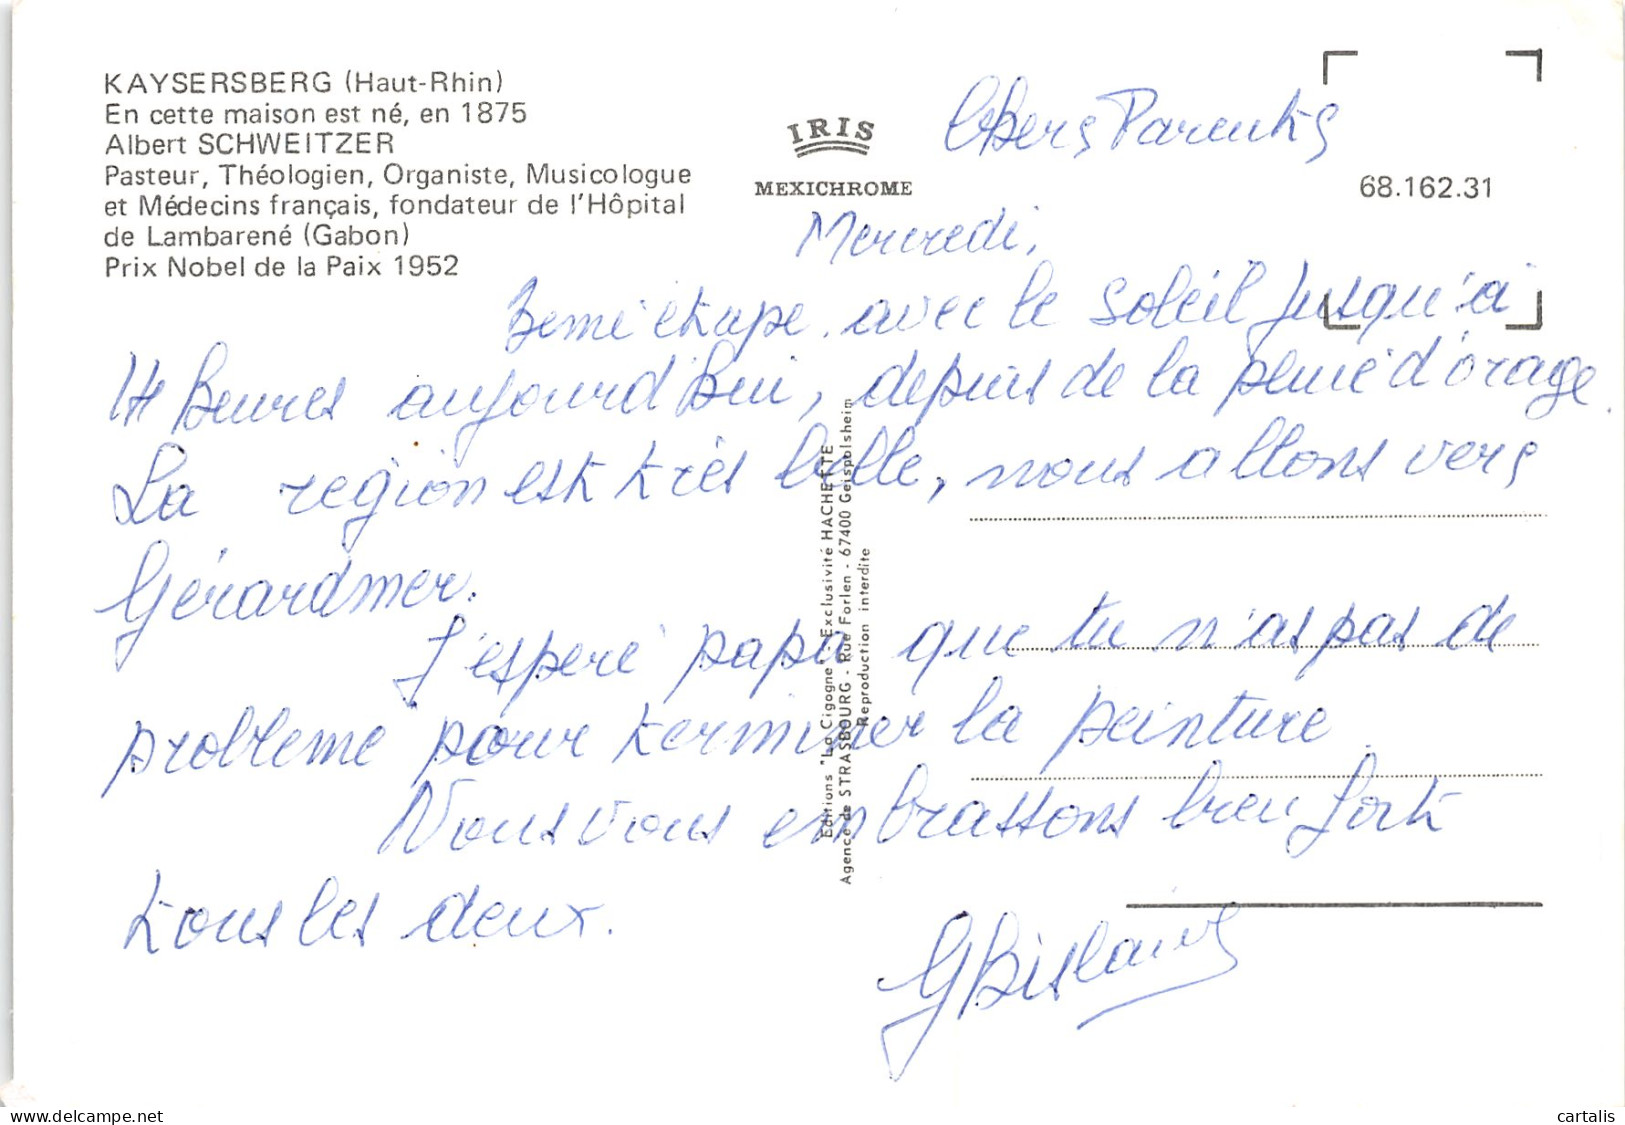 KAYSERSBERG (Haut-Rhin)
En cette maison est né, en 1875
Albert SCHWEITZER
Pasteur, Théologien, Organiste, Musicologue
et Médecins français, fondateur de l'Hôpital
de Lambarené (Gabon)
Prix Nobel de la Paix 1952
IRIS
MEXICHROME
68.162.31
Chers Parents
Mercredi,
3eme étape, avec le soleil jusqu'à
14 heures aujourd'hui, depuis de la pluie d'orage.
La région est très belle, nous allons vers
Gérardmer.
J'espère papa que tu n'as pas de
problème pour terminer la peinture.
Nous vous embrassons bien fort
tous les deux.
Ghislaine
Editions "La Cigogne" Exclusivité HACHETTE
Agence de STRASBOURG - Rue Forlen - 67400 Geispolsheim
Reproduction interdite
cartalis